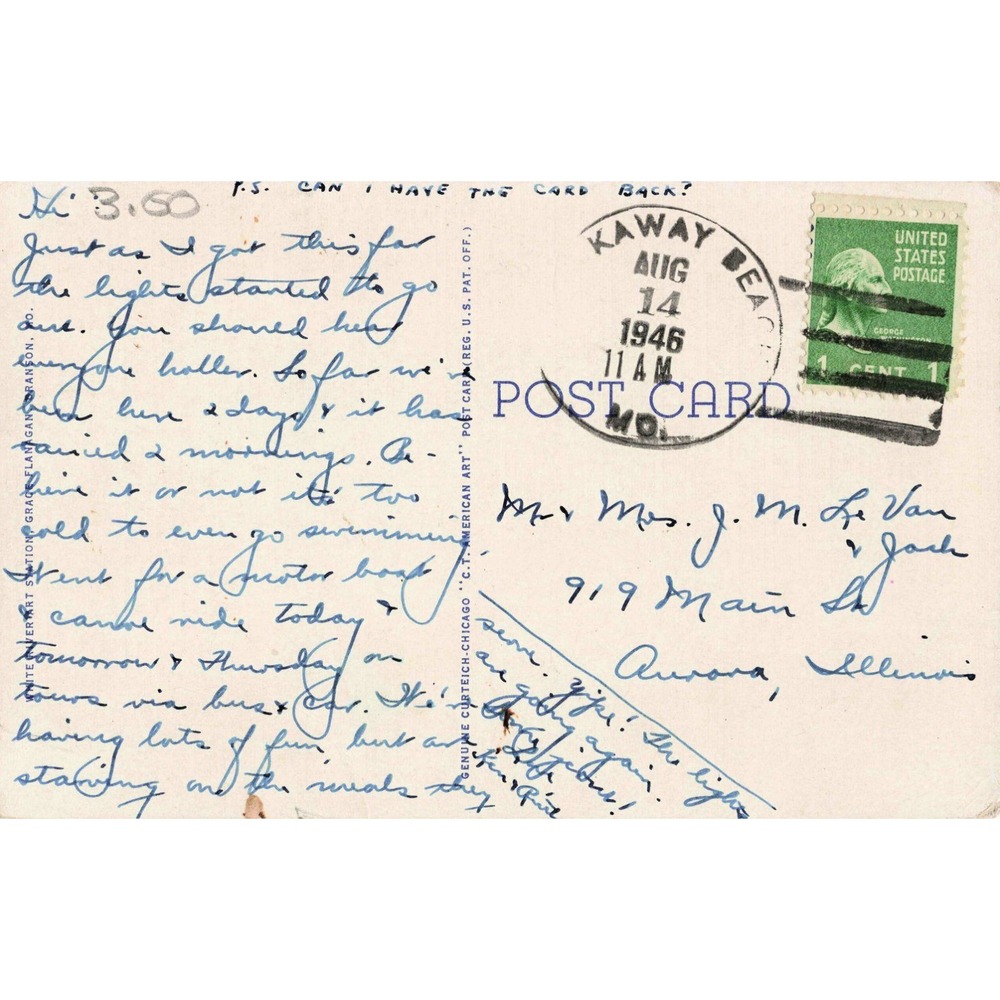 P.S. CAN I HAVE THE CARD BACK?
Hi 3.50
Just as I got this far
the lights started to go
out. You should hear
everyone holler. So far we've
been here 2 days & it has
rained 2 mornings. Be-
lieve it or not its too
cold to even go swimming.
Went for a motor boat
& canoe ride today &
tomorrow & Thursday on
tours via bus & car. We're
having lots of fun, but are
starving on the meals they
serve. Yipe! The lights
are going again.
WHITE RIVER ART STATION, GRACE FLANAGAN, BRANSON, MO.
GENUINE CURTEICH-CHICAGO "C.T. AMERICAN ART" POST CARD (REG. U.S. PAT. OFF.)
KAWAY BEAC
AUG
14
1946
11 AM
MO.
UNITED
STATES
POSTAGE
GEORGE
1 CENT 1
POST CARD
Mr & Mrs. J. M. Le Van
& Jack
919 Main St
Aurora, Illinois